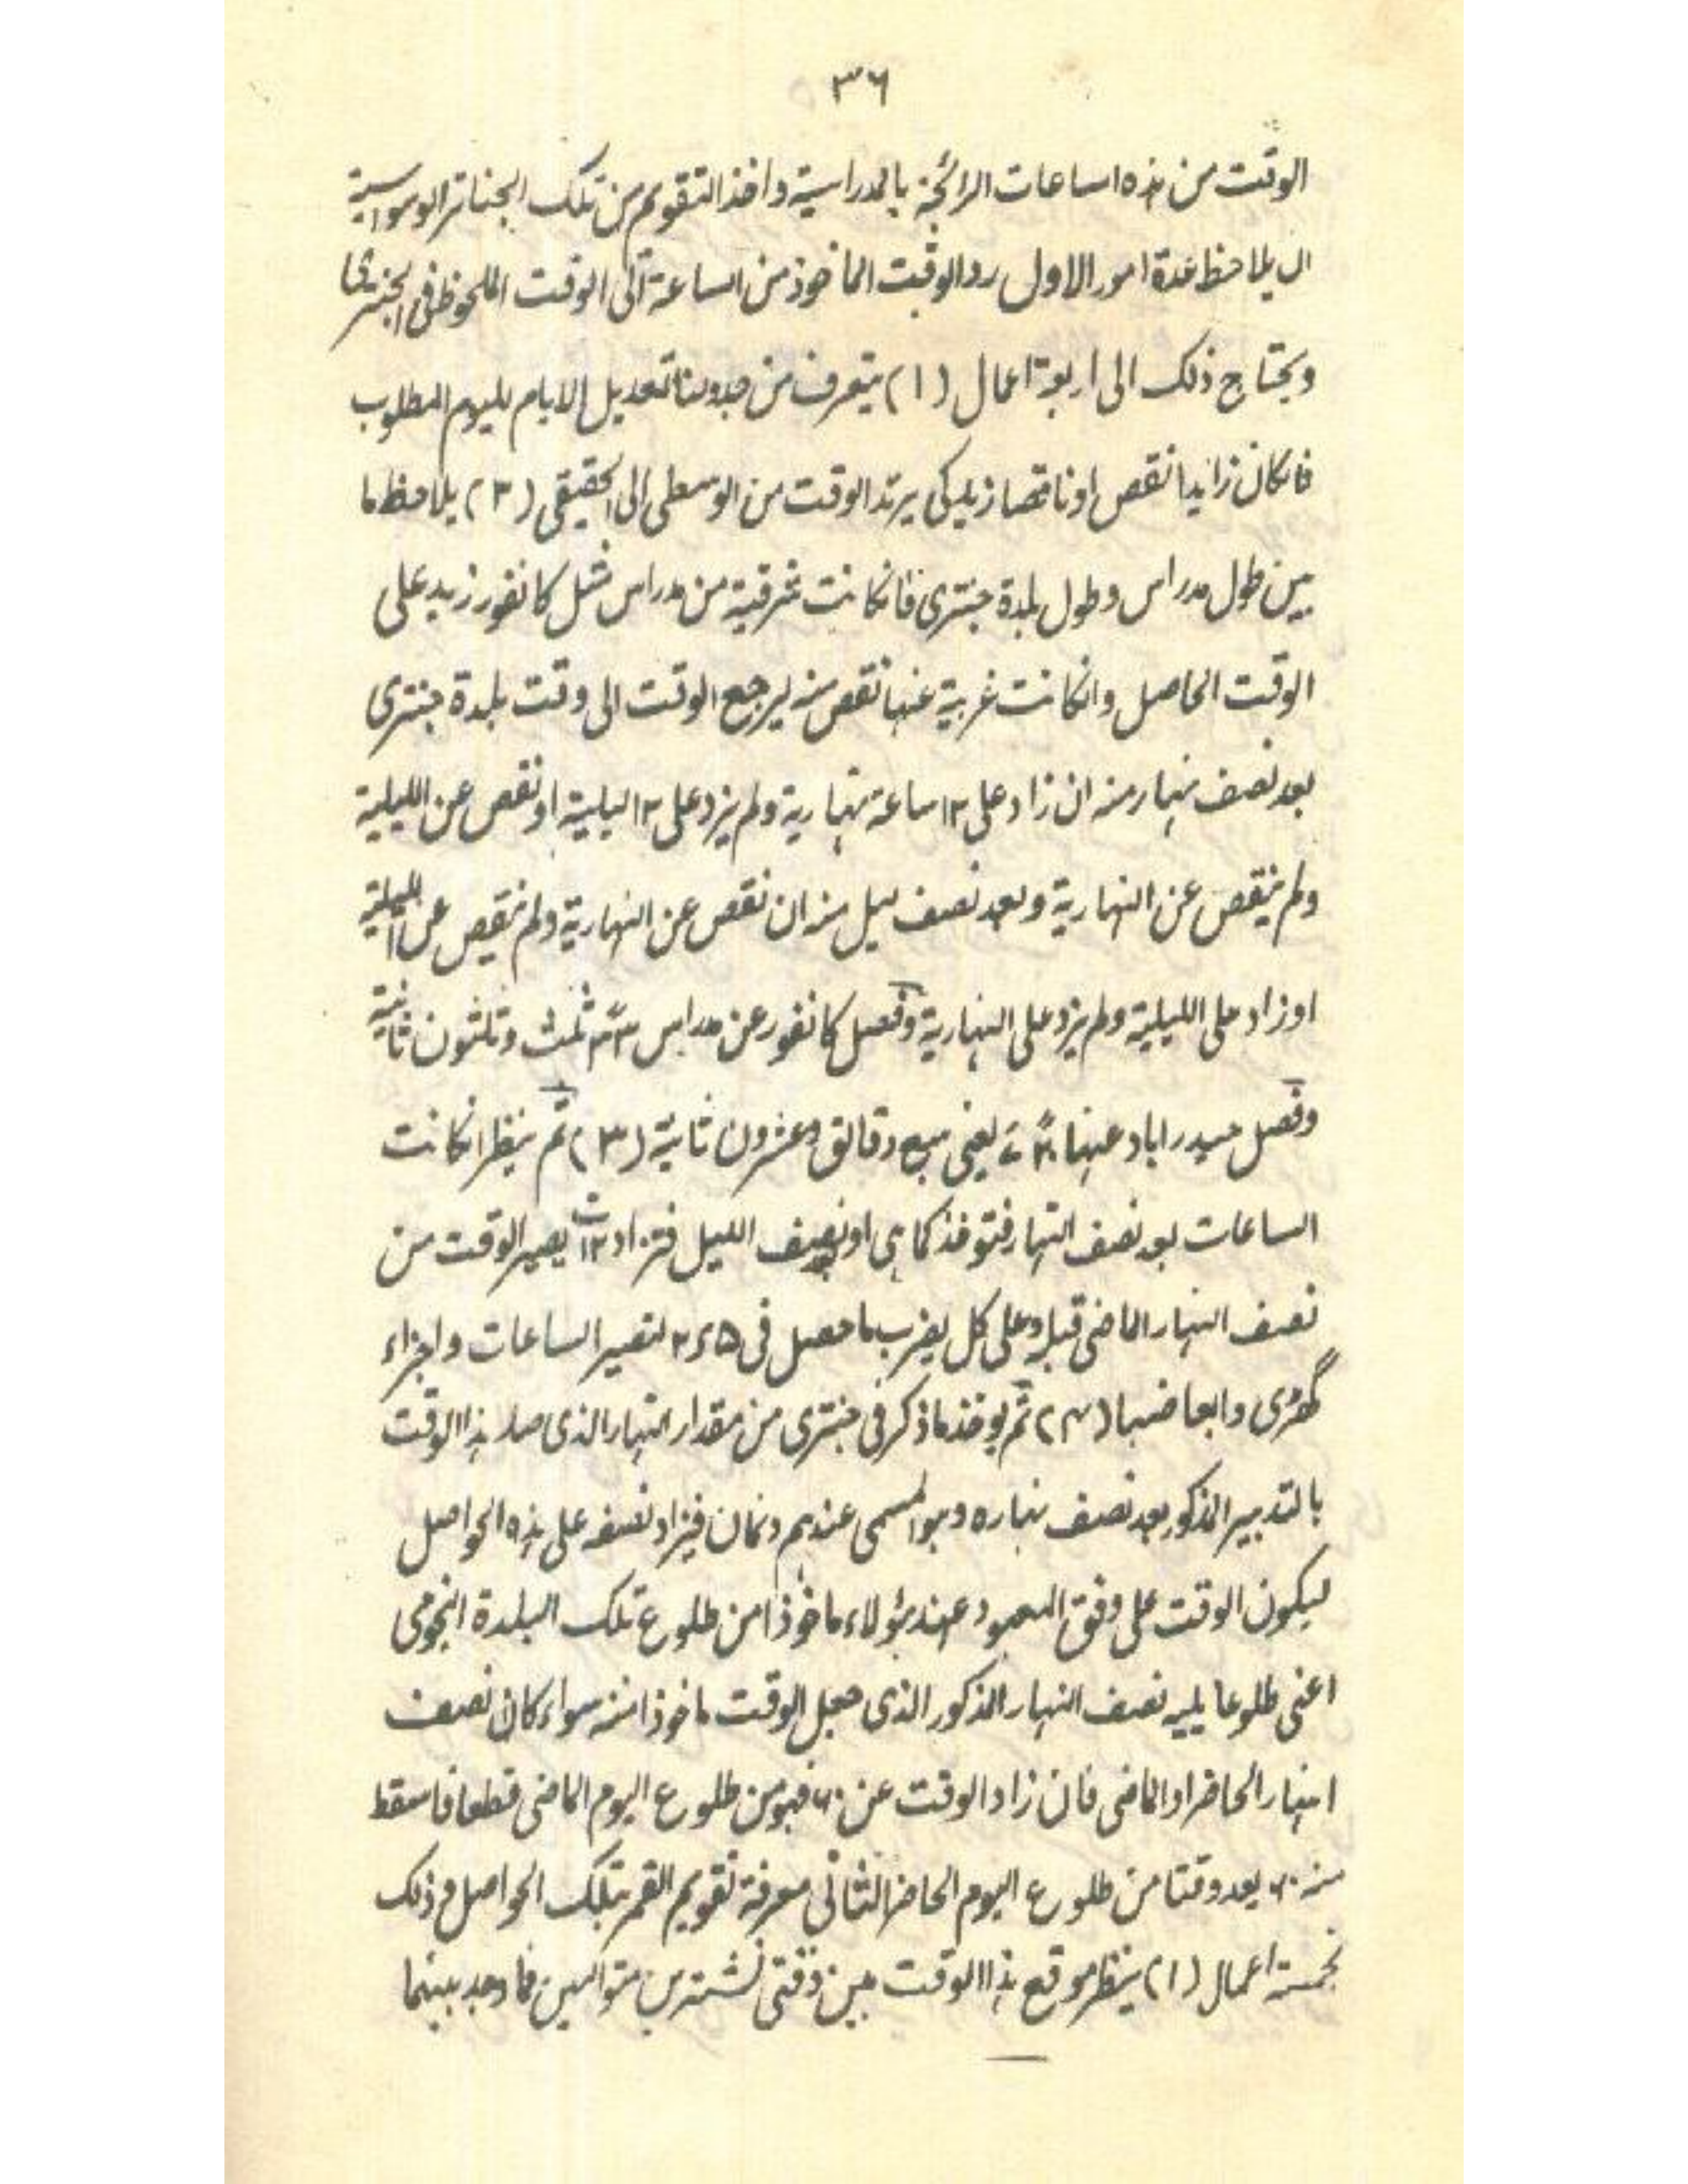 ٣٦
الوقت من هذه الساعات الرائجة بالمدراسية واخذ التقويم من تلك الجناتر الوسواسية
ان يلاحظ عدة امور الاول رد الوقت الماخوذ من الساعة الى الوقت الملحوظ فى الجنترى
ويحتاج ذلك الى اربعة اعمال (١) يتعرف من جدولنا تعديل الايام لليوم المطلوب
فانكان زايدا نقص او ناقصا زيد كى يرتد الوقت من الوسطى الى الحقيقى (٢) يلاحظ ما
بين طول مدراس وطول بلدة جنترى فانكانت شرقية من مدراس مثل كانفور زيد على
الوقت الحاصل وانكانت غربية عنها نقص منه ليرجع الوقت الى وقت بلدة جنترى
بعد نصف نهار منه ان زاد على ١٢ ساعة نهارية ولم يزد على ١٢ ليلية او نقص عن الليلية
ولم ينقص عن النهارية وبعد نصف ليل منه ان نقص عن النهارية ولم ينقص عن الليلية
او زاد على الليلية ولم يزد على النهارية وفصل كانفور عن مدراس ٣٣ ثلث وثلثون ثانية
وفصل حيدراباد عنها يعنى سبع دقائق وعشرون ثانية (٣) ثم ينظر انكانت
الساعات بعد نصف النهار فتوخذ كما هى او بعد نصف الليل فتزاد ١٢ يصير الوقت من
نصف النهار الماضى قبله وعلى كل يضرب ما حصل فى ٥ء٢ لتصير الساعات واجزاء
گھڑى وابعاضها (٤) ثم يوخذ ما ذكر فى جنترى من مقدار النهار الذى صار هذا الوقت
بالتدبير المذكور بعد نصف نهاره وهو المسمى عندهم دنمان فيزاد نصفه على هذه الحواصل
ليكون الوقت على وفق المعهود عند هؤلاء ماخوذا من طلوع تلك البلدة النجومى
اعنى طلوعا يليه نصف النهار المذكور الذى جعل الوقت ماخوذا منه سواء كان نصف
النهار الحاضر او الماضى فان زاد الوقت عن ٦٠ فهو من طلوع اليوم الماضى قطعا فاسقط
منه ٦٠ يعد وقتا من طلوع اليوم الحاضر الثانى معرفة تقويم القمر بتلك الحواصل وذلك
بخمسة اعمال (١) ينظر موقع هذا الوقت بين وقتى نشهترين متواليين فما وجد بينهما